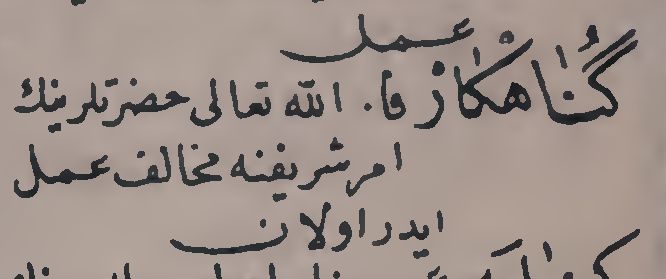 عمل
گُنَاهْكَارْ فا. الله تعالى حضرتلرينك
امر شريفنه مخالف عمل
ايدر اولان